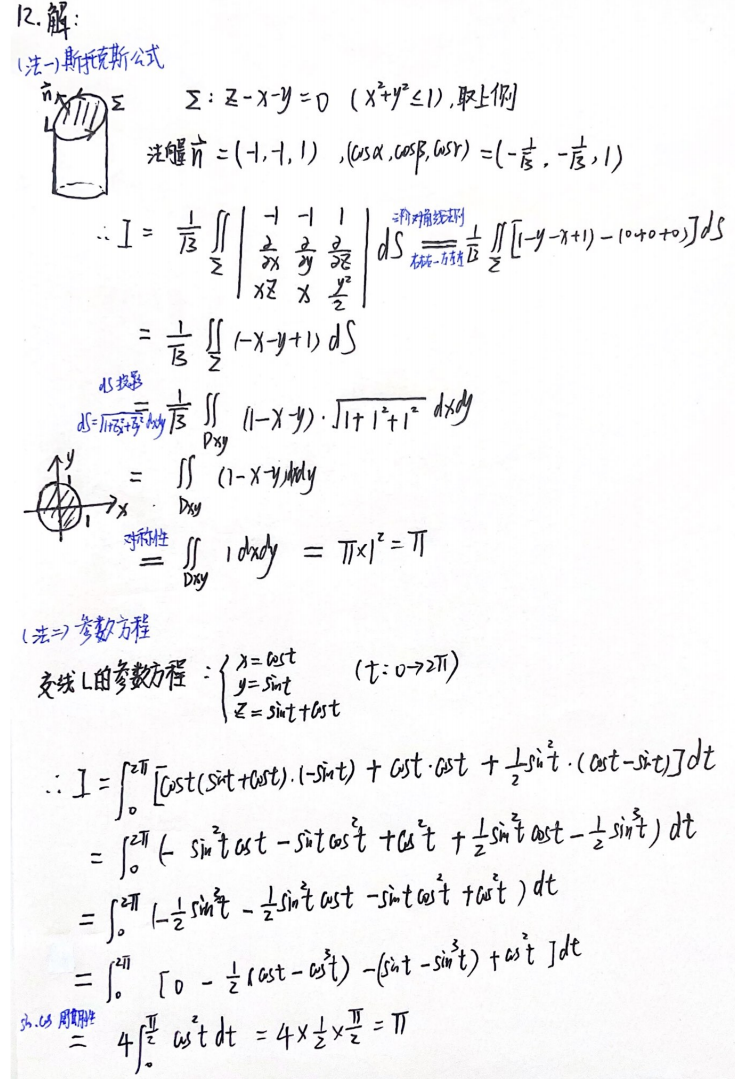 12.解:
(法一)斯托克斯公式
n⃗ Σ L Σ: z-x-y=0 (x²+y²≤1),取上侧
法向量n⃗=(-1,-1,1) ,(cosα,cosβ,cosγ)=(-1/√3,-1/√3,1)
∴I= 1/√3 ∬_Σ |-1 -1 1; ∂/∂x ∂/∂y ∂/∂z; xz x y²/2| dS = 1/√3 ∬_Σ [(-y-x+1)-(0+0+0)]dS
三阶对角线法则
= 1/√3 ∬_Σ (-x-y+1)dS
dS投影
dS=√(1+z_x²+z_y²)dxdy = 1/√3 ∬_Dxy (1-x-y)·√(1+1²+1²) dxdy
y 1 x 1 = ∬_Dxy (1-x-y)dxdy
对称性 = ∬_Dxy 1dxdy = π×1²=π
(法二)参数方程
交线L的参数方程:{x=cost
y=sint (t:0→2π)
z=sint+cost
∴I=∫₀^2π [cost(sint+cost)·(-sint)+cost·cost+1/2 sin²t·(cost-sint)]dt
=∫₀^2π (-sin²t cost-sint cos²t+cos²t+1/2 sin²t cost-1/2 sin³t)dt
=∫₀^2π (-1/2 sin³t-1/2 sin²t cost-sint cos²t+cos²t)dt
=∫₀^2π [0-1/2(cost-cos³t)-(sint-sin³t)+cos²t]dt
sin.cos周期性 = 4∫₀^π/2 cos²t dt=4×1/2×π/2=π